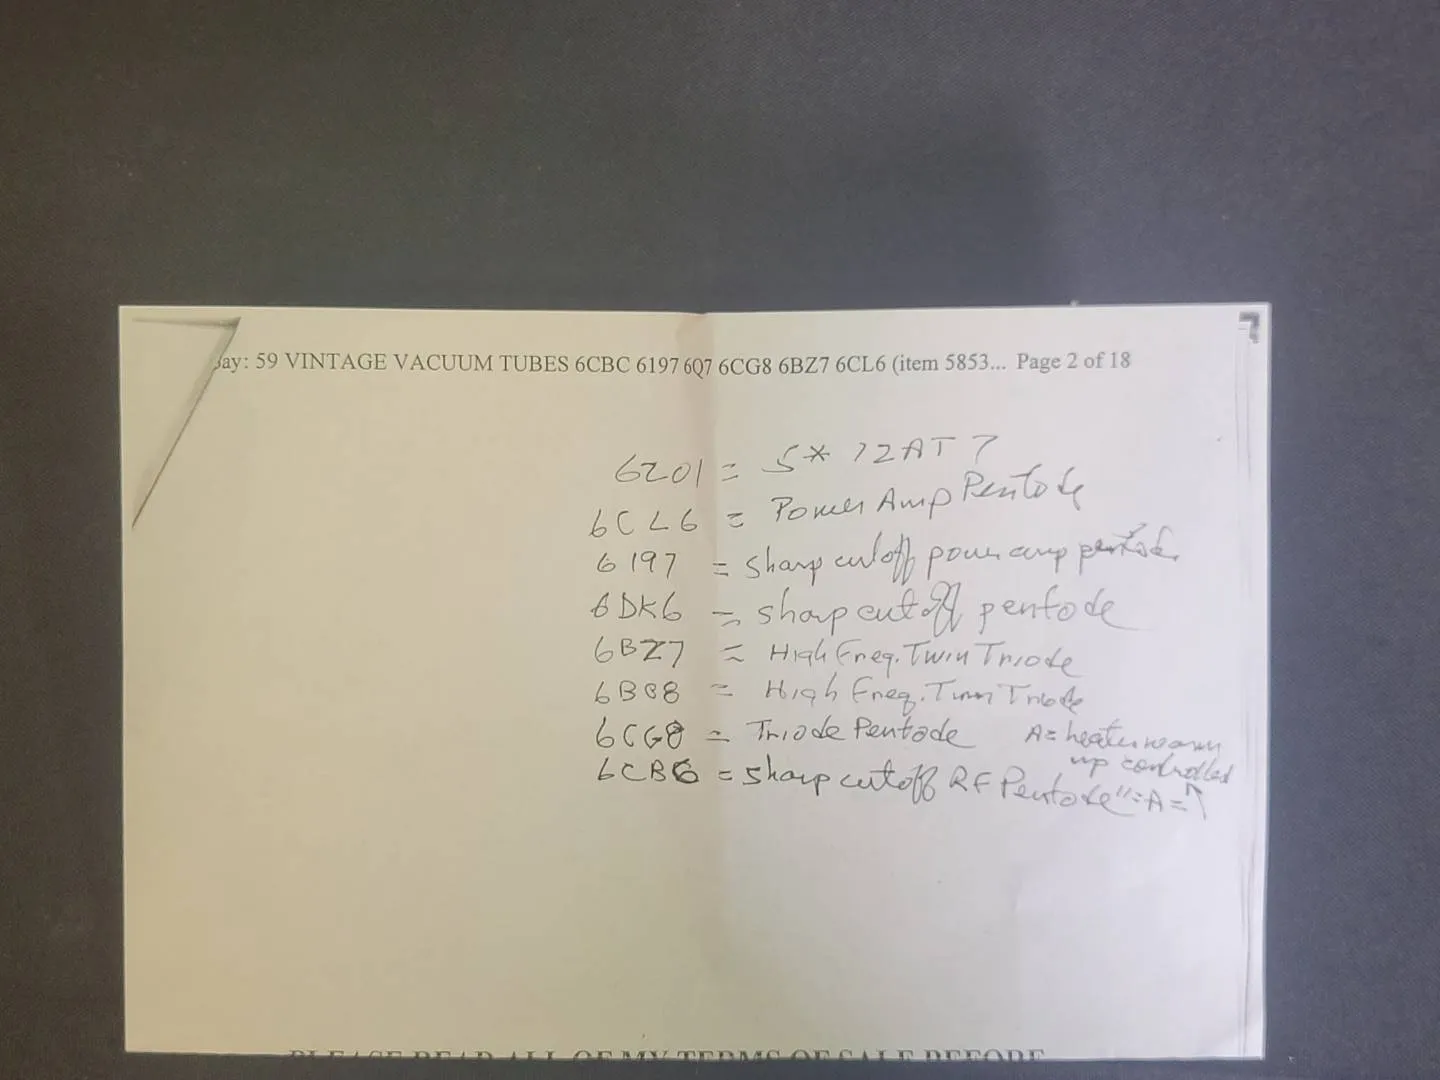 Bay: 59 VINTAGE VACUUM TUBES 6CBC 6197 6Q7 6CG8 6BZ7 6CL6 (item 5853... Page 2 of 18
6201 = 5* 12AT7
6CL6 = Power Amp Pentode
6197 = sharp cutoff power amp pentode
6DK6 = sharp cutoff pentode
6BZ7 = High Freq. Twin Triode
6BQ8 = High Freq. Twin Triode
6CG8 = Triode Pentode A = heater warm
up controlled
6CB6 = sharp cutoff RF Pentode " = A = ↑
PLEASE READ ALL OF MY TERMS OF SALE BEFORE